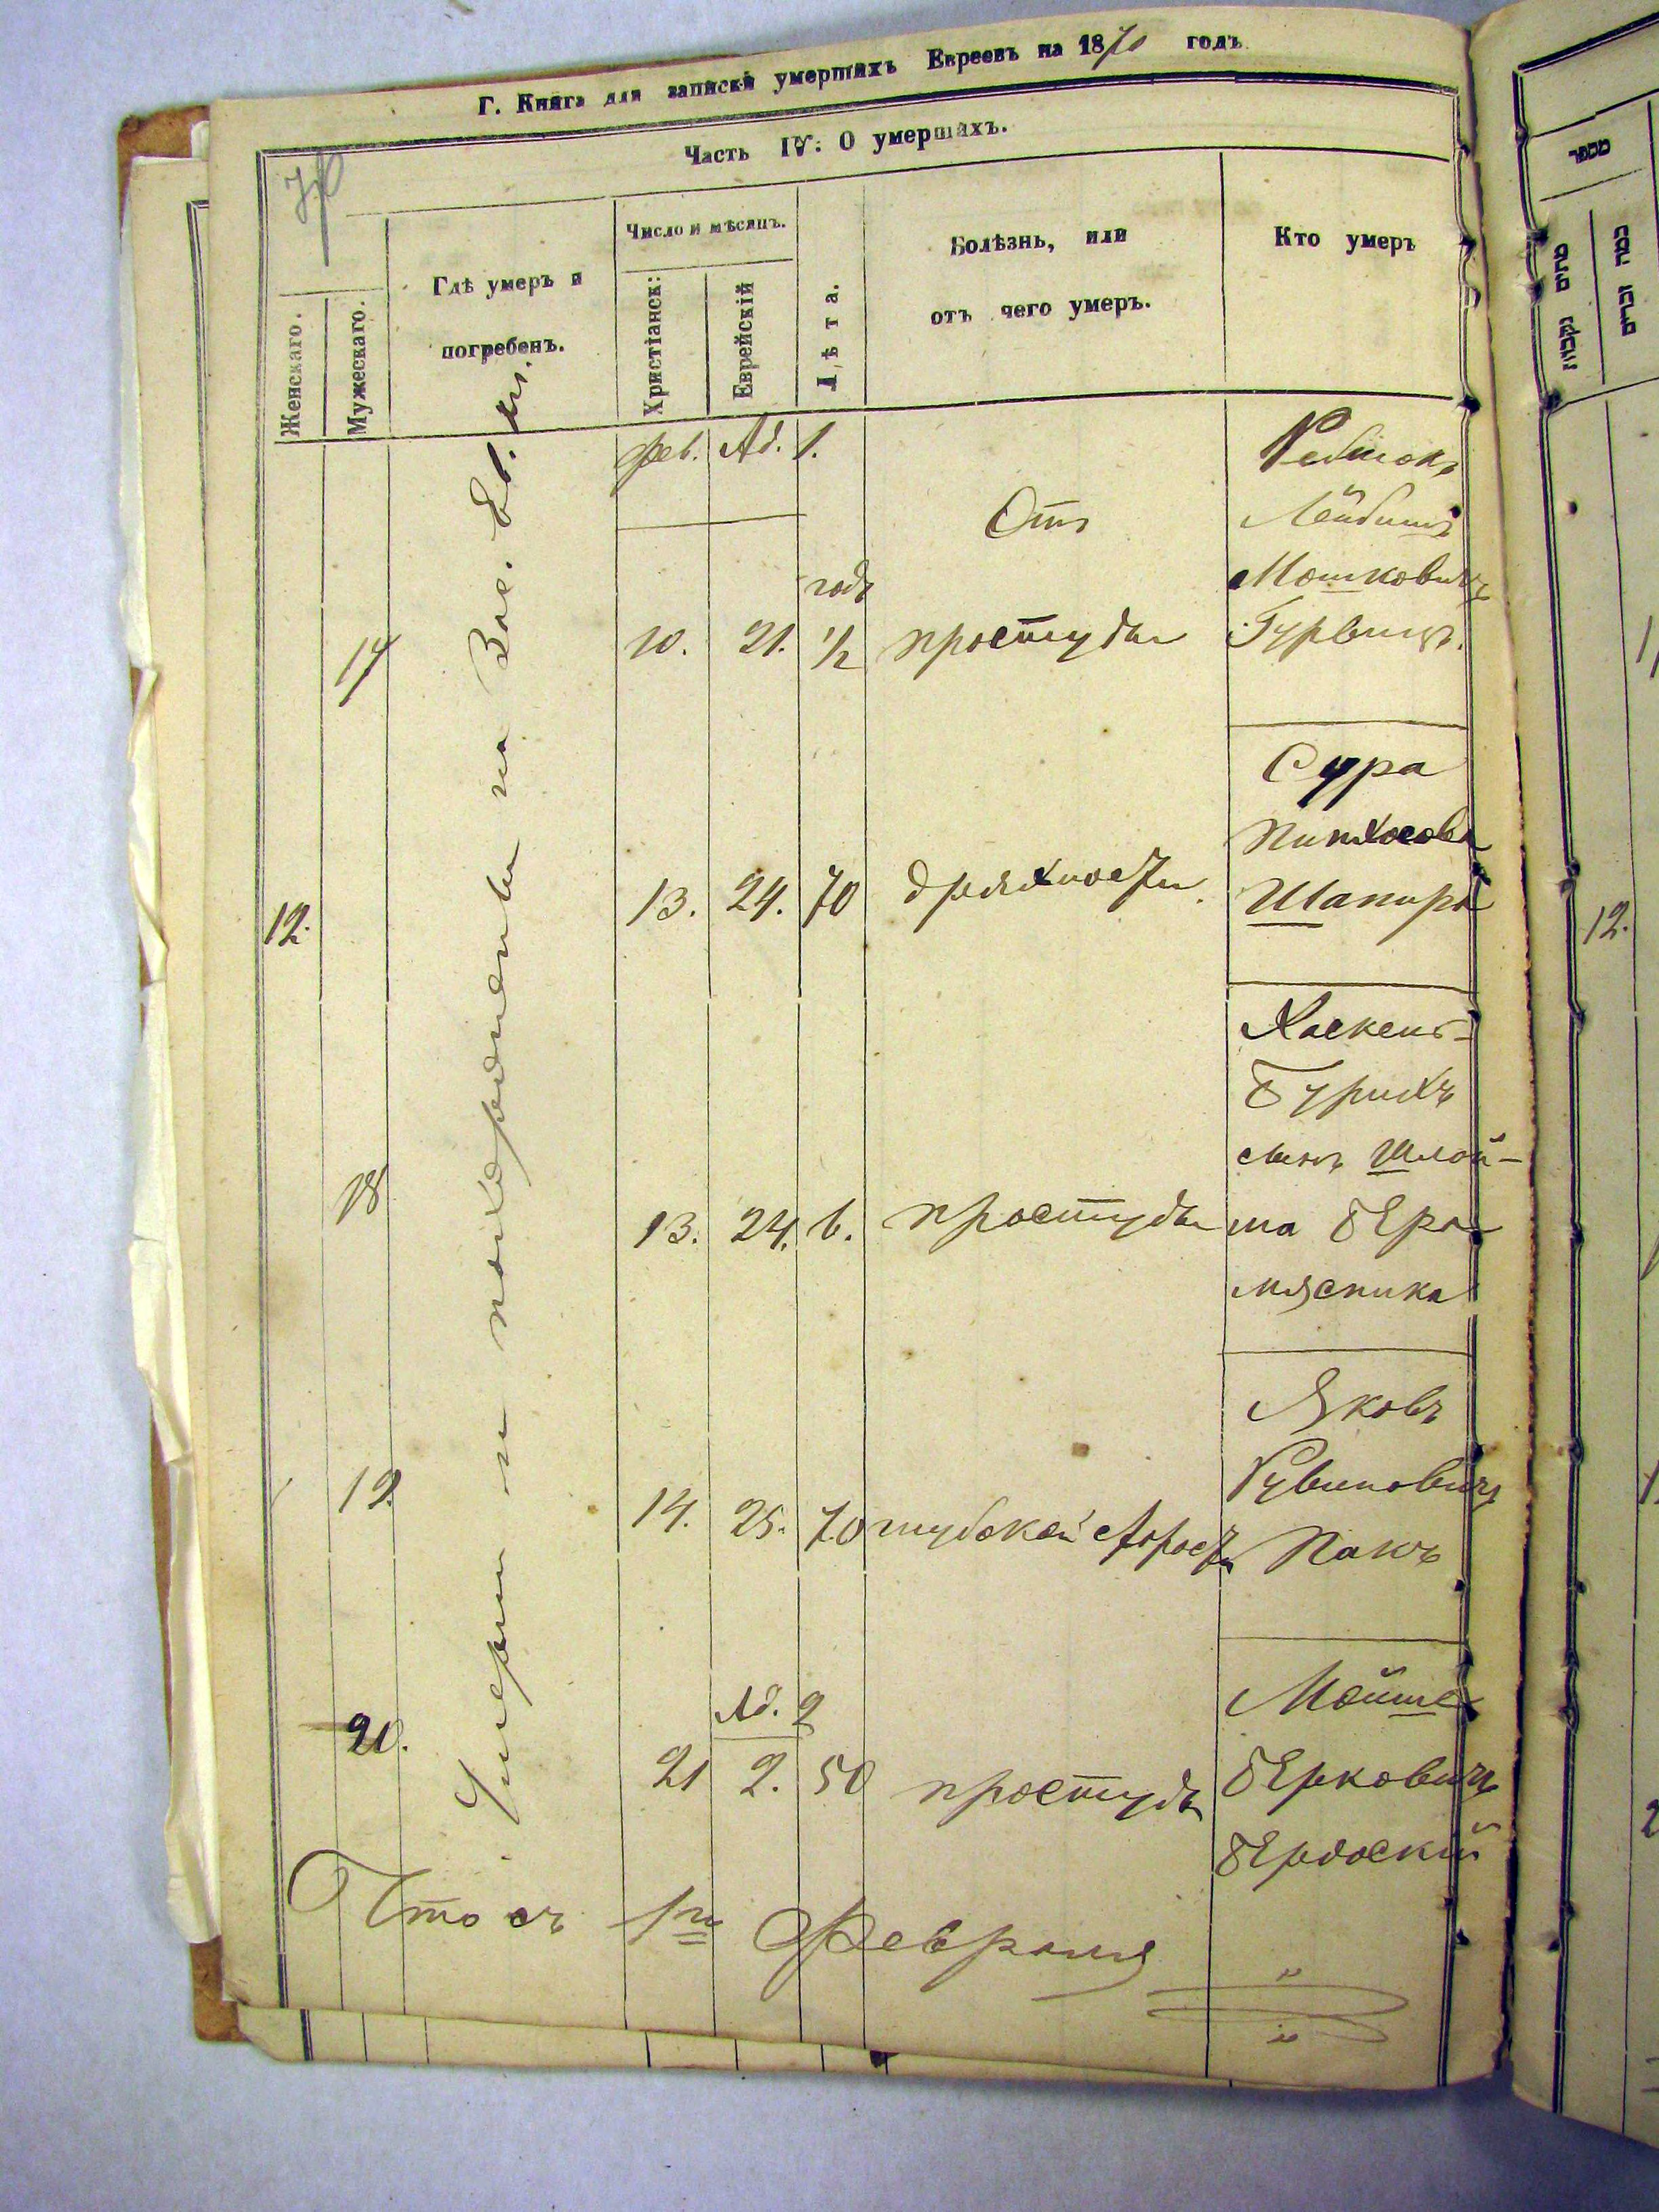 Г. Книга для записки умершихъ Евреевъ на 1870 годъ
Часть IV: О умершихъ.
Женскаго.
Мужескаго.
Гдѣ умеръ и
погребенъ.
Число и мѣсяцъ.
Христіанск:
Еврейскій
Лѣта.
Болѣзнь, или
отъ чего умеръ.
Кто умеръ
Умерли и похоронены на
фев. Ад. 1.
17 10. 21. годъ 1/2
Отъ
простуды
Ребенокъ
Лейбишъ
Мошковичъ
Гурвицъ.
12. 13. 24. 70 дряхлости.
Сура
Пинхосова
Шапира
18 13. 24. 6. простуды
Хаскель-
Бурихъ
сынъ Шлой-
ма Бера
мясника
19. 14. 25. 70 глубокой старости
Яковъ
Рувиновичъ
Пакъ
Ад. 2
20. 21 2. 50 простуды
Мойше
Берковичъ
съ 1го Февраля
12.